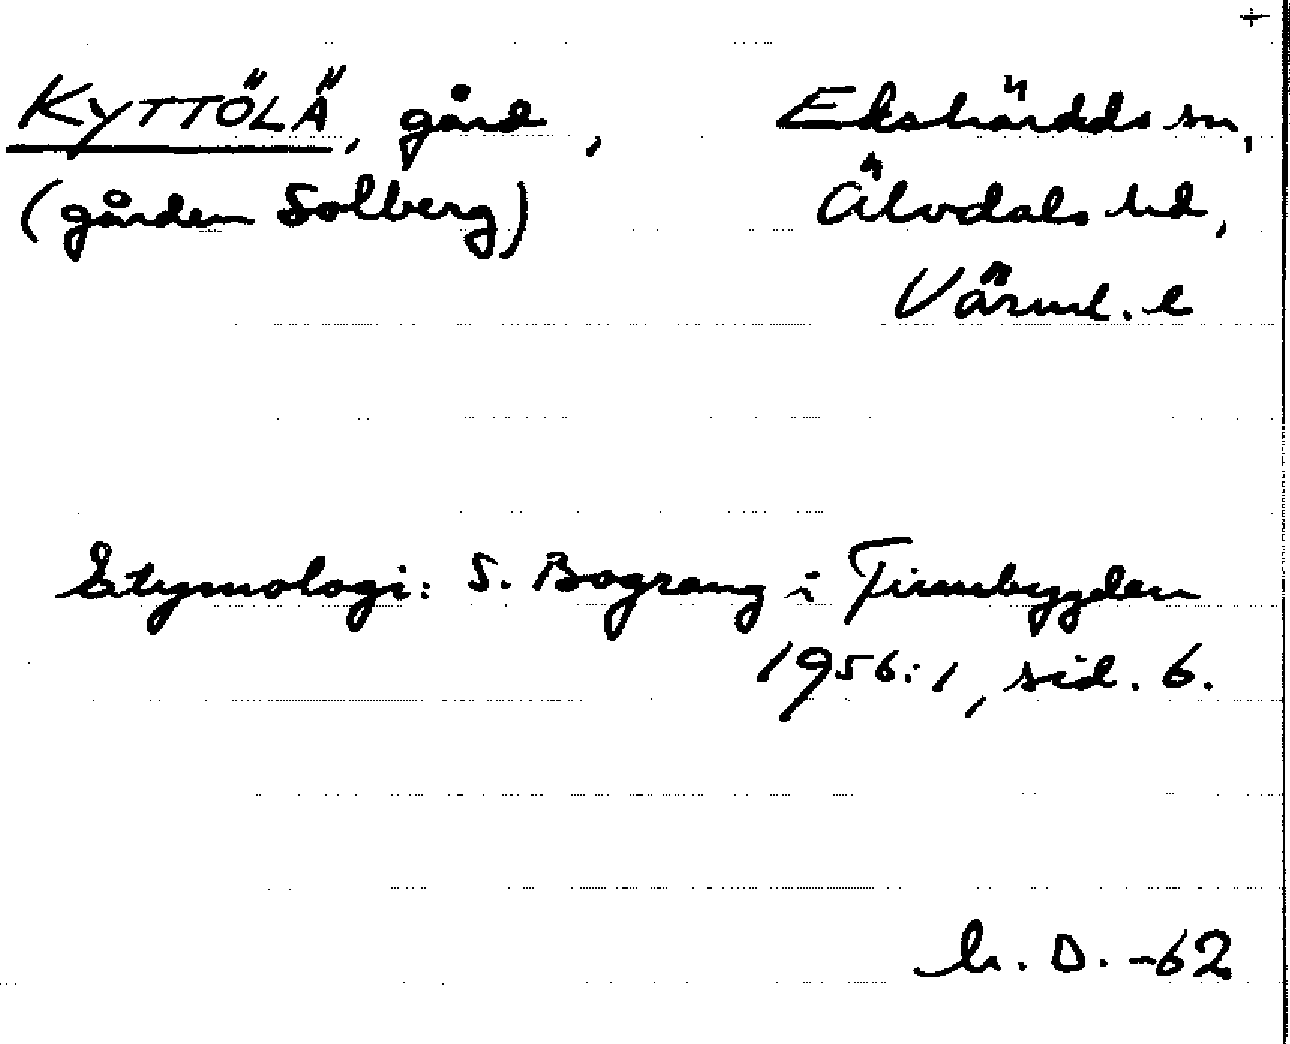 +
KYTTÖLÄ, gård, Ekshärads sn,
(gården Solberg) Älvdals hd,
Värml. l
Etymologi: S. Bograng i Finnbygden
1956:1, sid. 6.
D. -62